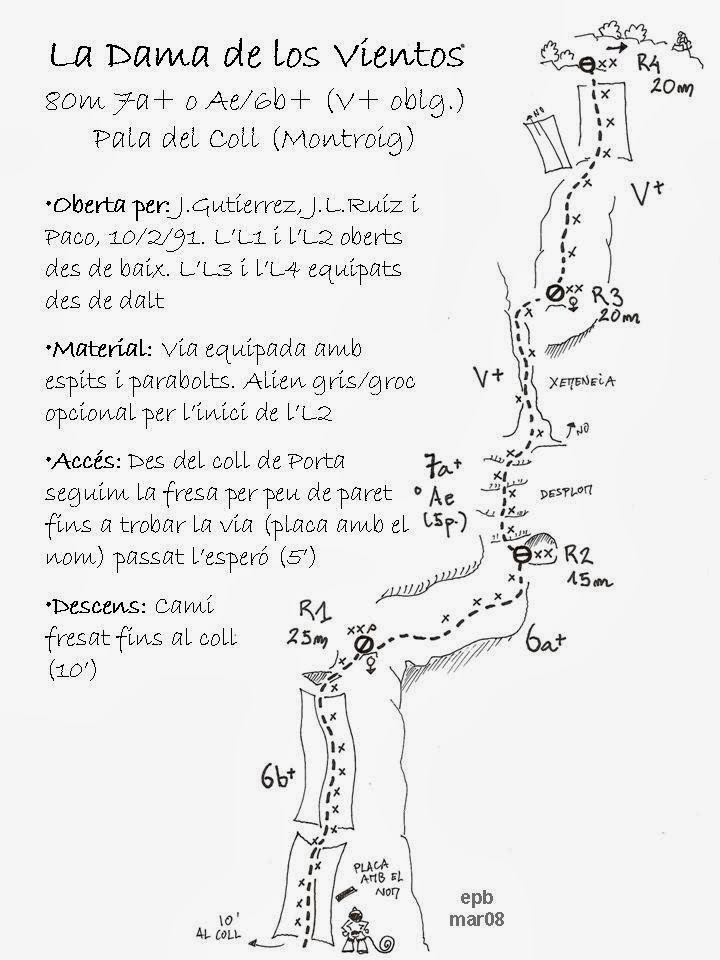 La Dama de los Vientos
80m 7a+ o Ae/6b+ (V+ oblg.)
Pala del Coll (Montroig)
•Oberta per: J.Gutierrez, J.L.Ruiz i
Paco, 10/2/91. L'L1 i l'L2 oberts
des de baix. L'L3 i l'L4 equipats
des de dalt
•Material: Via equipada amb
espits i parabolts. Alien gris/groc
opcional per l'inici de l'L2
•Accés: Des del coll de Porta
seguim la fresa per peu de paret
fins a trobar la via (placa amb el
nom) passat l'esperó (5')
•Descens: Camí
fresat fins al coll
(10')
R4
20m
NO
V+
R3
20m
V+
XEMENEIA
NO
7a+
o Ae
(5p.)
DESPLOM
R2
15m
R1
25m
6a+
6b+
PLACA
AMB EL
NOM
10'
AL COLL
epb
mar08